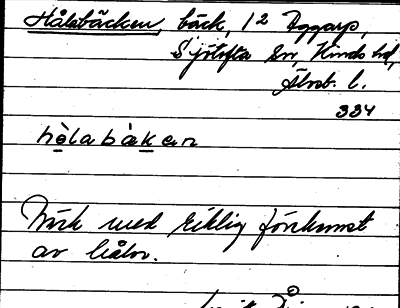 Hålabäcken, bäck, 12 Aggarp,
Sjötofta sn, Kinds hd,
Älvsb. l.
334
hòlabàkan
med riklig förekomst
av hålor.